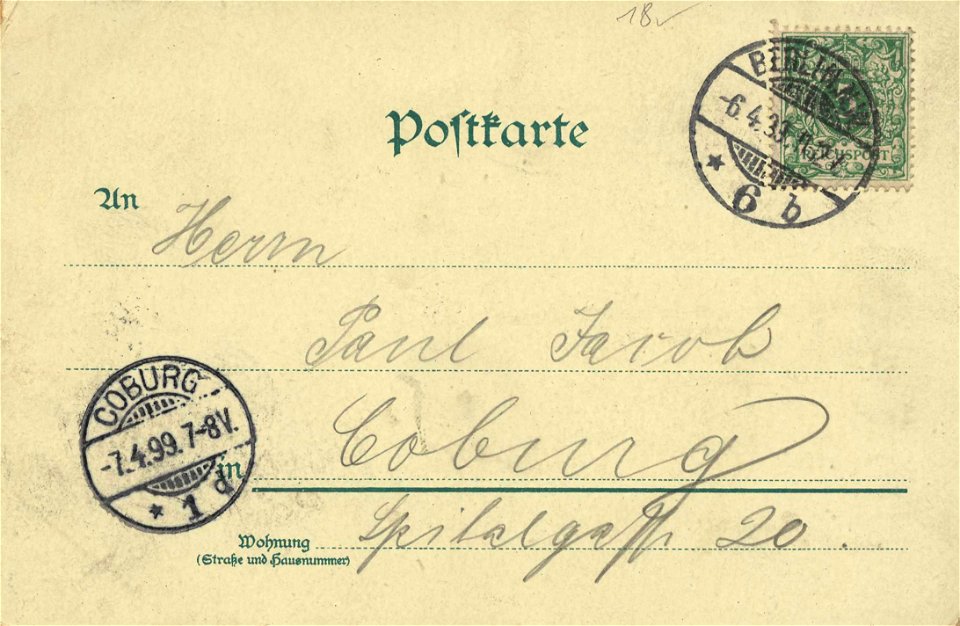 18
BERLIN
-6.4.99
6 b
REICHSPOST
Postkarte
An Herrn
Paul Jacob
COBURG
-7.4.99. 7-8V.
1 d
in Coburg
Wohnung
(Straße und Hausnummer)
Spitalgasse 20.